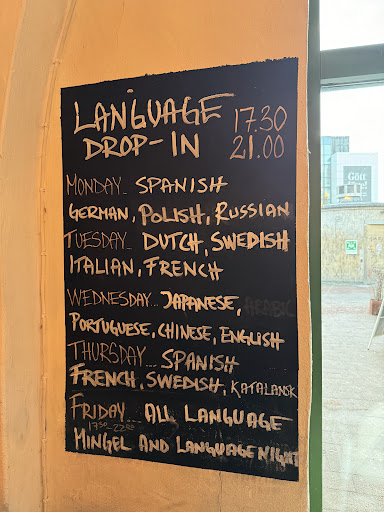 LANGUAGE 17.30
DROP-IN 21.00
MONDAY.. SPANISH
GERMAN, POLISH, RUSSIAN
TUESDAY... DUTCH, SWEDISH
ITALIAN, FRENCH
WEDNESDAY... JAPANESE, ARABIC
PORTUGUESE, CHINESE, ENGLISH
THURSDAY... SPANISH
FRENCH, SWEDISH, KATALANSK
FRIDAY.... ALL LANGUAGE
MINGEL AND LANGUAGE NIGHT
Gött